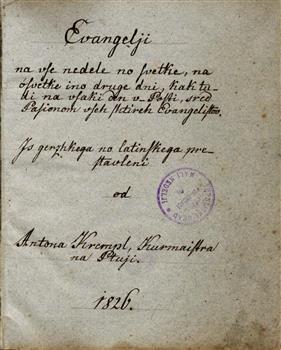 Evangelji
na vſe nedele no ſvetke, na
óſvetke ino druge dni, kak tu-
di na vſaki den v Poſti, ſred
Paſionom vſeh ſhtirih Evangeliſtov,
Is gerzhkega no latinſkega pre-
ſtavleni
od
Antona Krempl, Kurmaiſtra
na Ptuji.
1826.